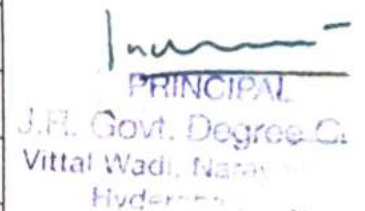 PRINCIPAL
J.R. Govt. Degree C
Vittal Wadi, Naray
Hyder